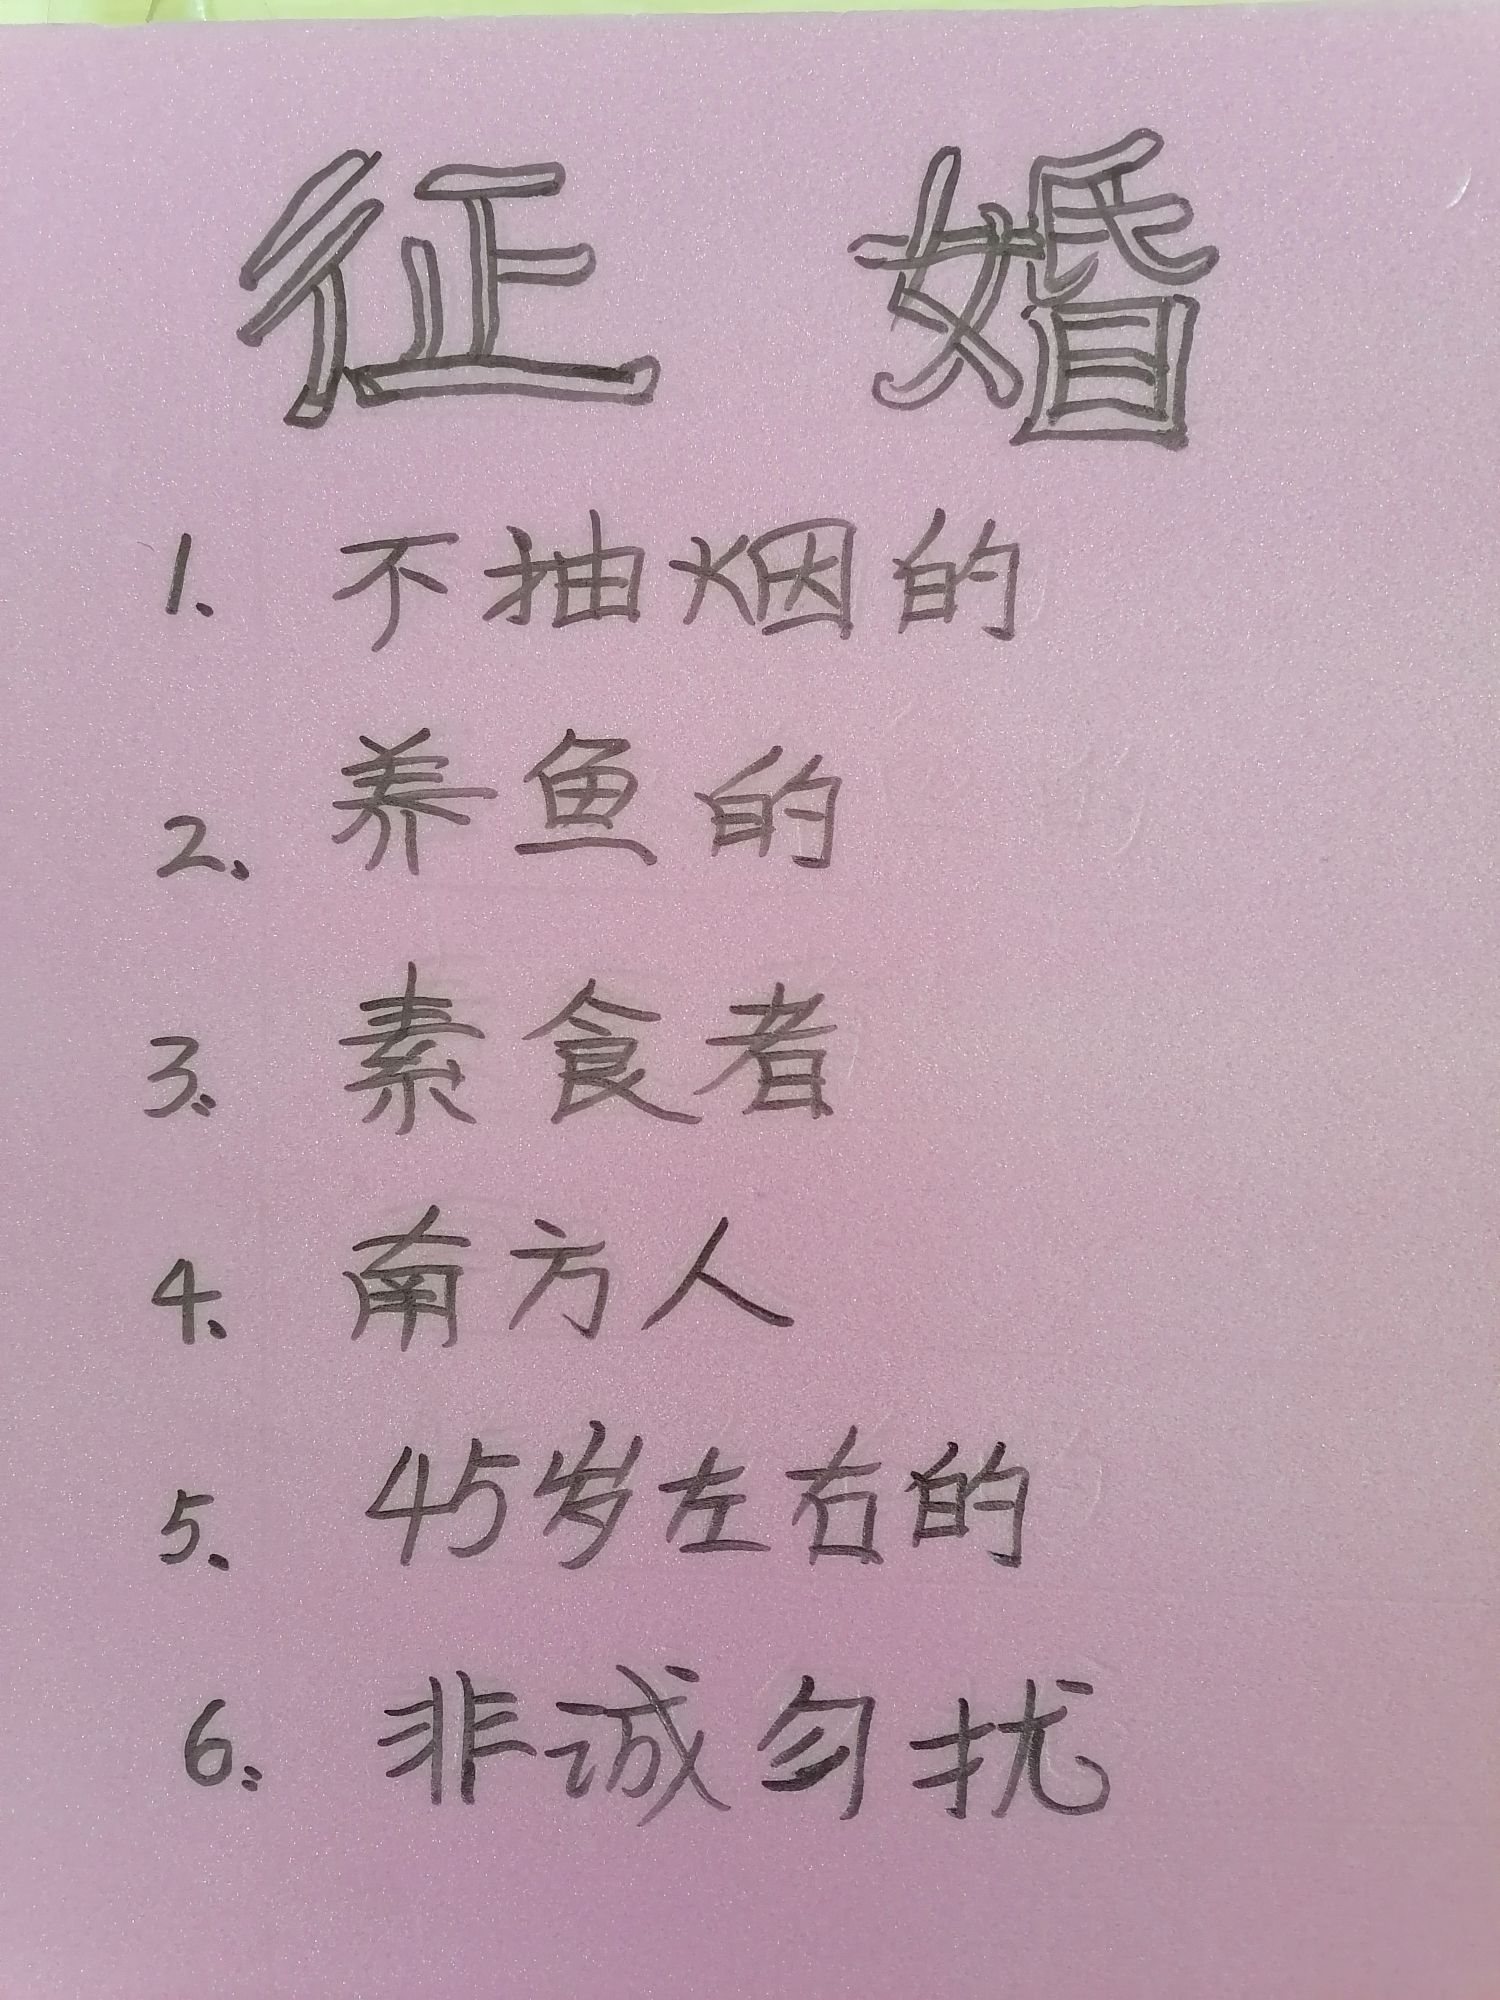 征婚
1. 不抽烟的
2. 养鱼的
3. 素食者
4. 南方人
5. 45岁左右的
6. 非诚勿扰